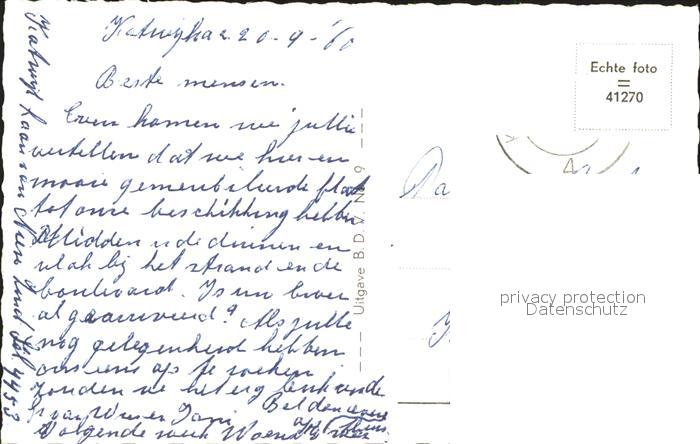 Katwijk a z 20-9-'60
Beste mensen.
Even komen we jullie
vertellen dat we hier en
mooie gemeubileerde flat
tot onze beschikking hebben
Midden in de duinen en
vlak bij het strand en de
boulevard. Is uw broer
al gearriveerd? Als jullie
nog gelegenheid hebben
ons eens op te zoeken
zouden we het erg leuk vinden
Volgende week Woensdag
Katwijk Laan van Nieuw Zuid
Uitgave B. D. V. Nr. 9
Echte foto
=
41270
privacy protection
Datenschutz